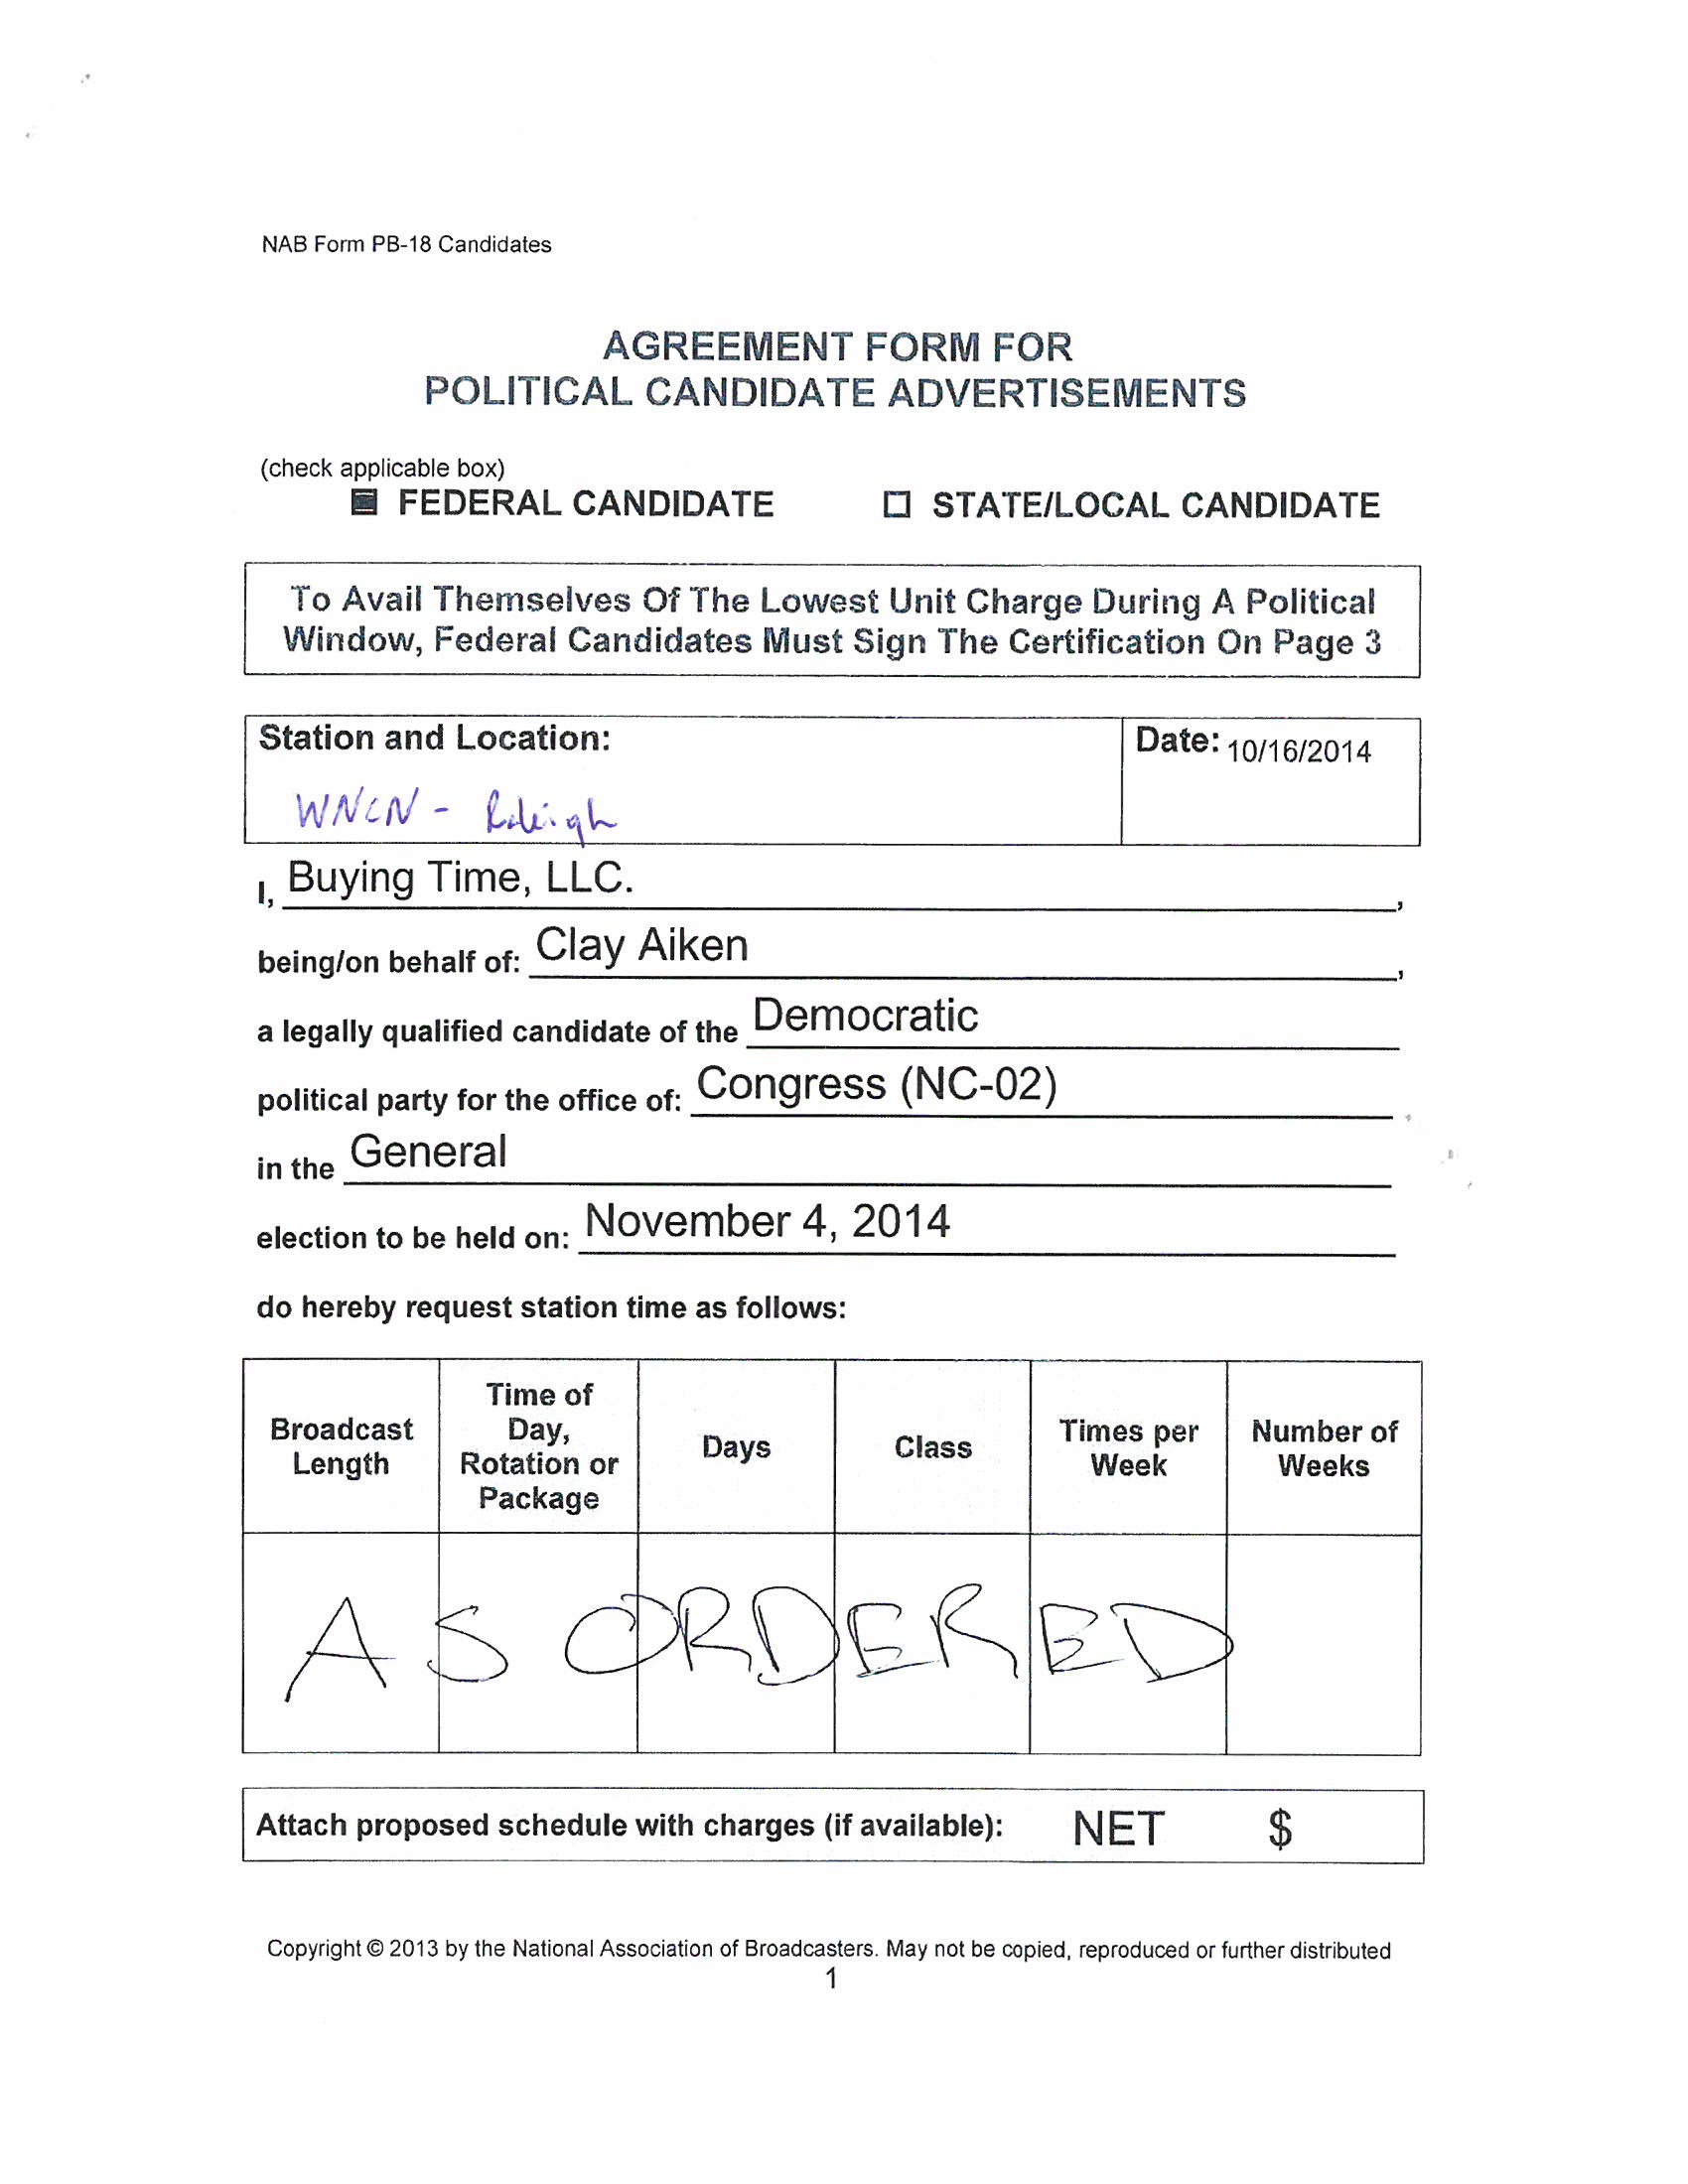 NAB Form PB-18 Candidates
AGREEMENT FORM FOR
POLITICAL CANDIDATE ADVERTISEMENTS
(check applicable box)
FEDERAL CANDIDATE ☐ STATE/LOCAL CANDIDATE
To Avail Themselves Of The Lowest Unit Charge During A Political
Window, Federal Candidates Must Sign The Certification On Page 3
Station and Location: Date: 10/16/2014
WNCN - Raleigh
I, Buying Time, LLC.,
being/on behalf of: Clay Aiken,
a legally qualified candidate of the Democratic
political party for the office of: Congress (NC-02)
in the General
election to be held on: November 4, 2014
do hereby request station time as follows:
Broadcast Length Time of Day, Rotation or Package Days Class Times per Week Number of Weeks
AS ORDERED
Attach proposed schedule with charges (if available): NET $
Copyright © 2013 by the National Association of Broadcasters. May not be copied, reproduced or further distributed
1